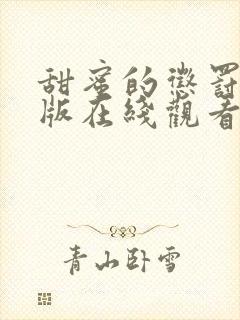 甜蜜的懲罰
版在綫觀看
青山卧雪